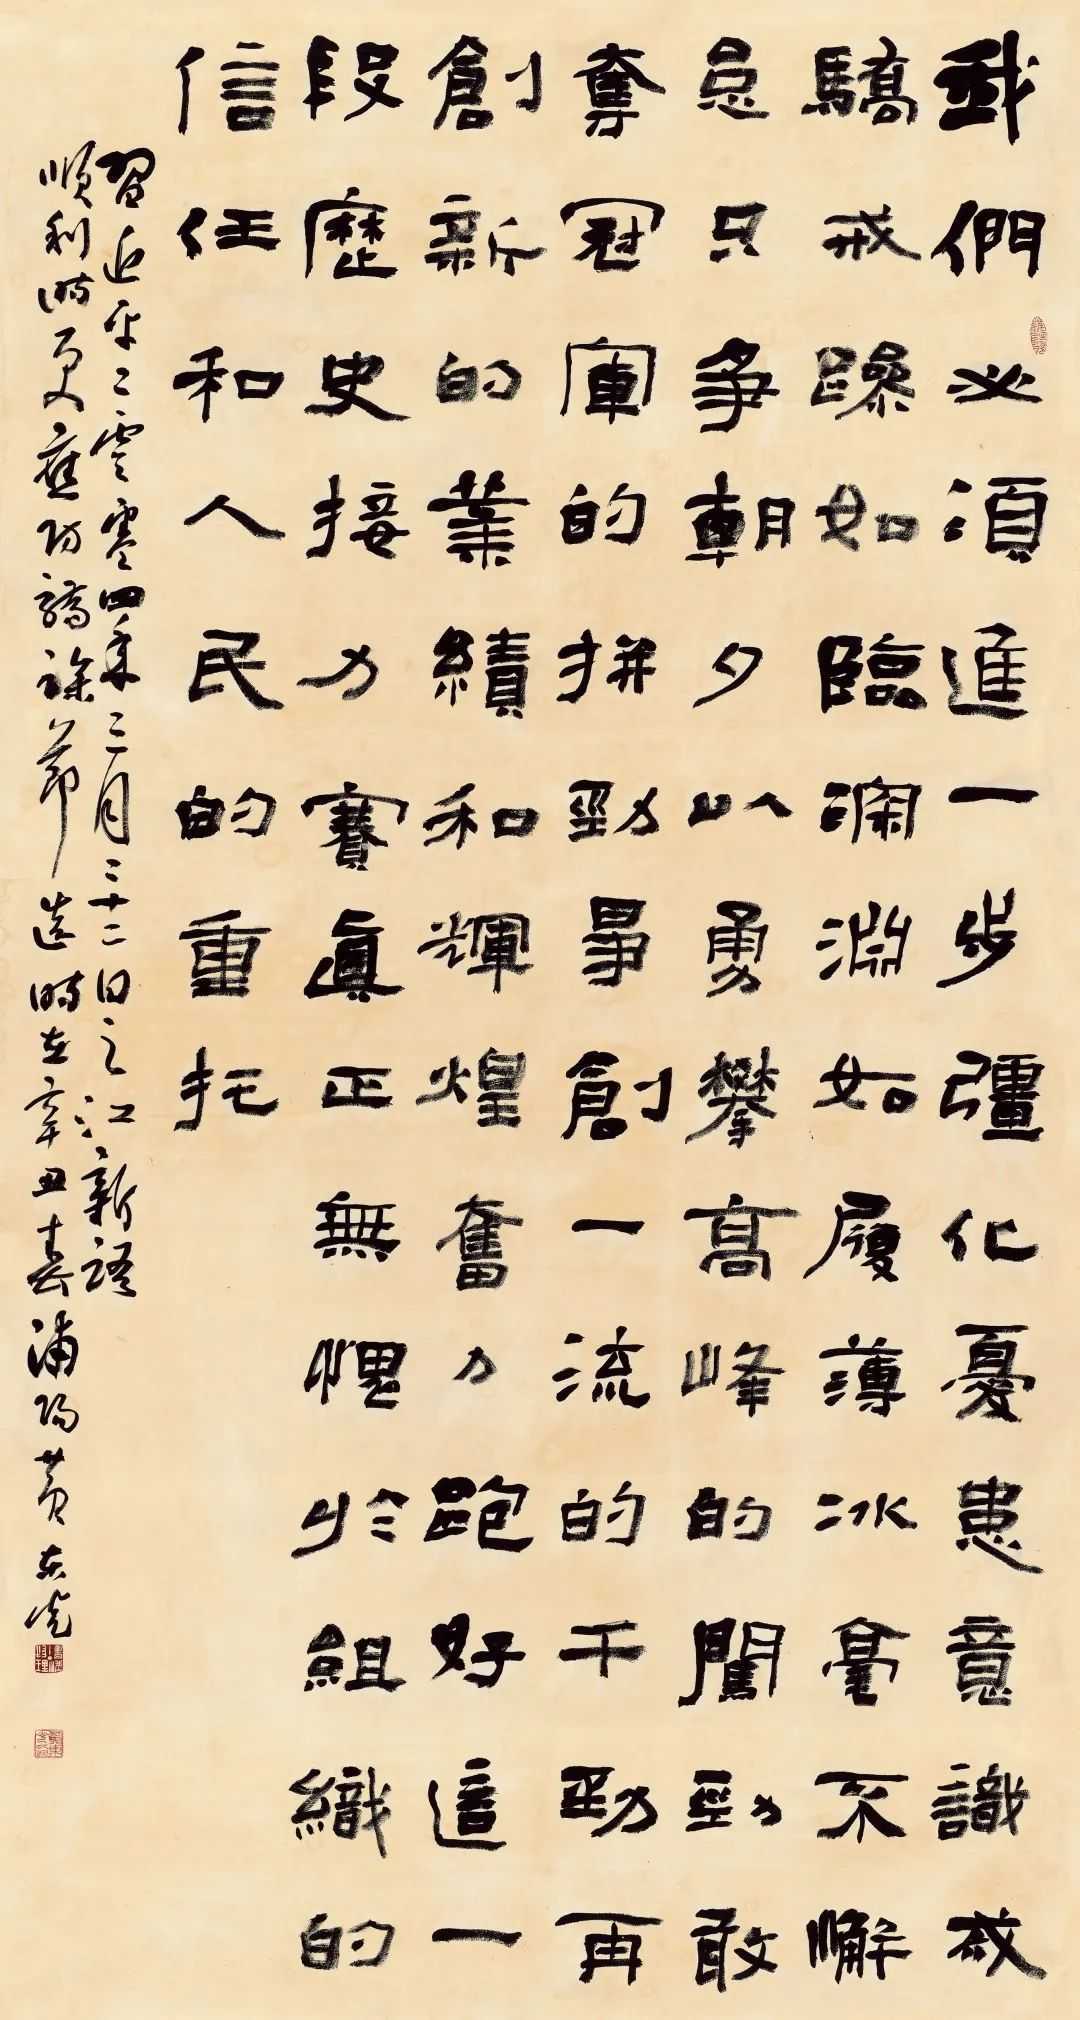 我們必須進一步彊化憂患意識戒
驕戒躁如臨深淵如履薄冰毫不懈
怠只爭朝夕以勇攀高峰的闖勁敢
奪冠軍的拼勁爭創一流的干勁再
創新的業績和輝煌奮力跑好這一
段歷史接力賽真正無愧於組織的
信任和人民的重托
習近平二零零四年三月二十二日之江新語
順利時更應防驕躁節選時在辛丑春浦陽黃